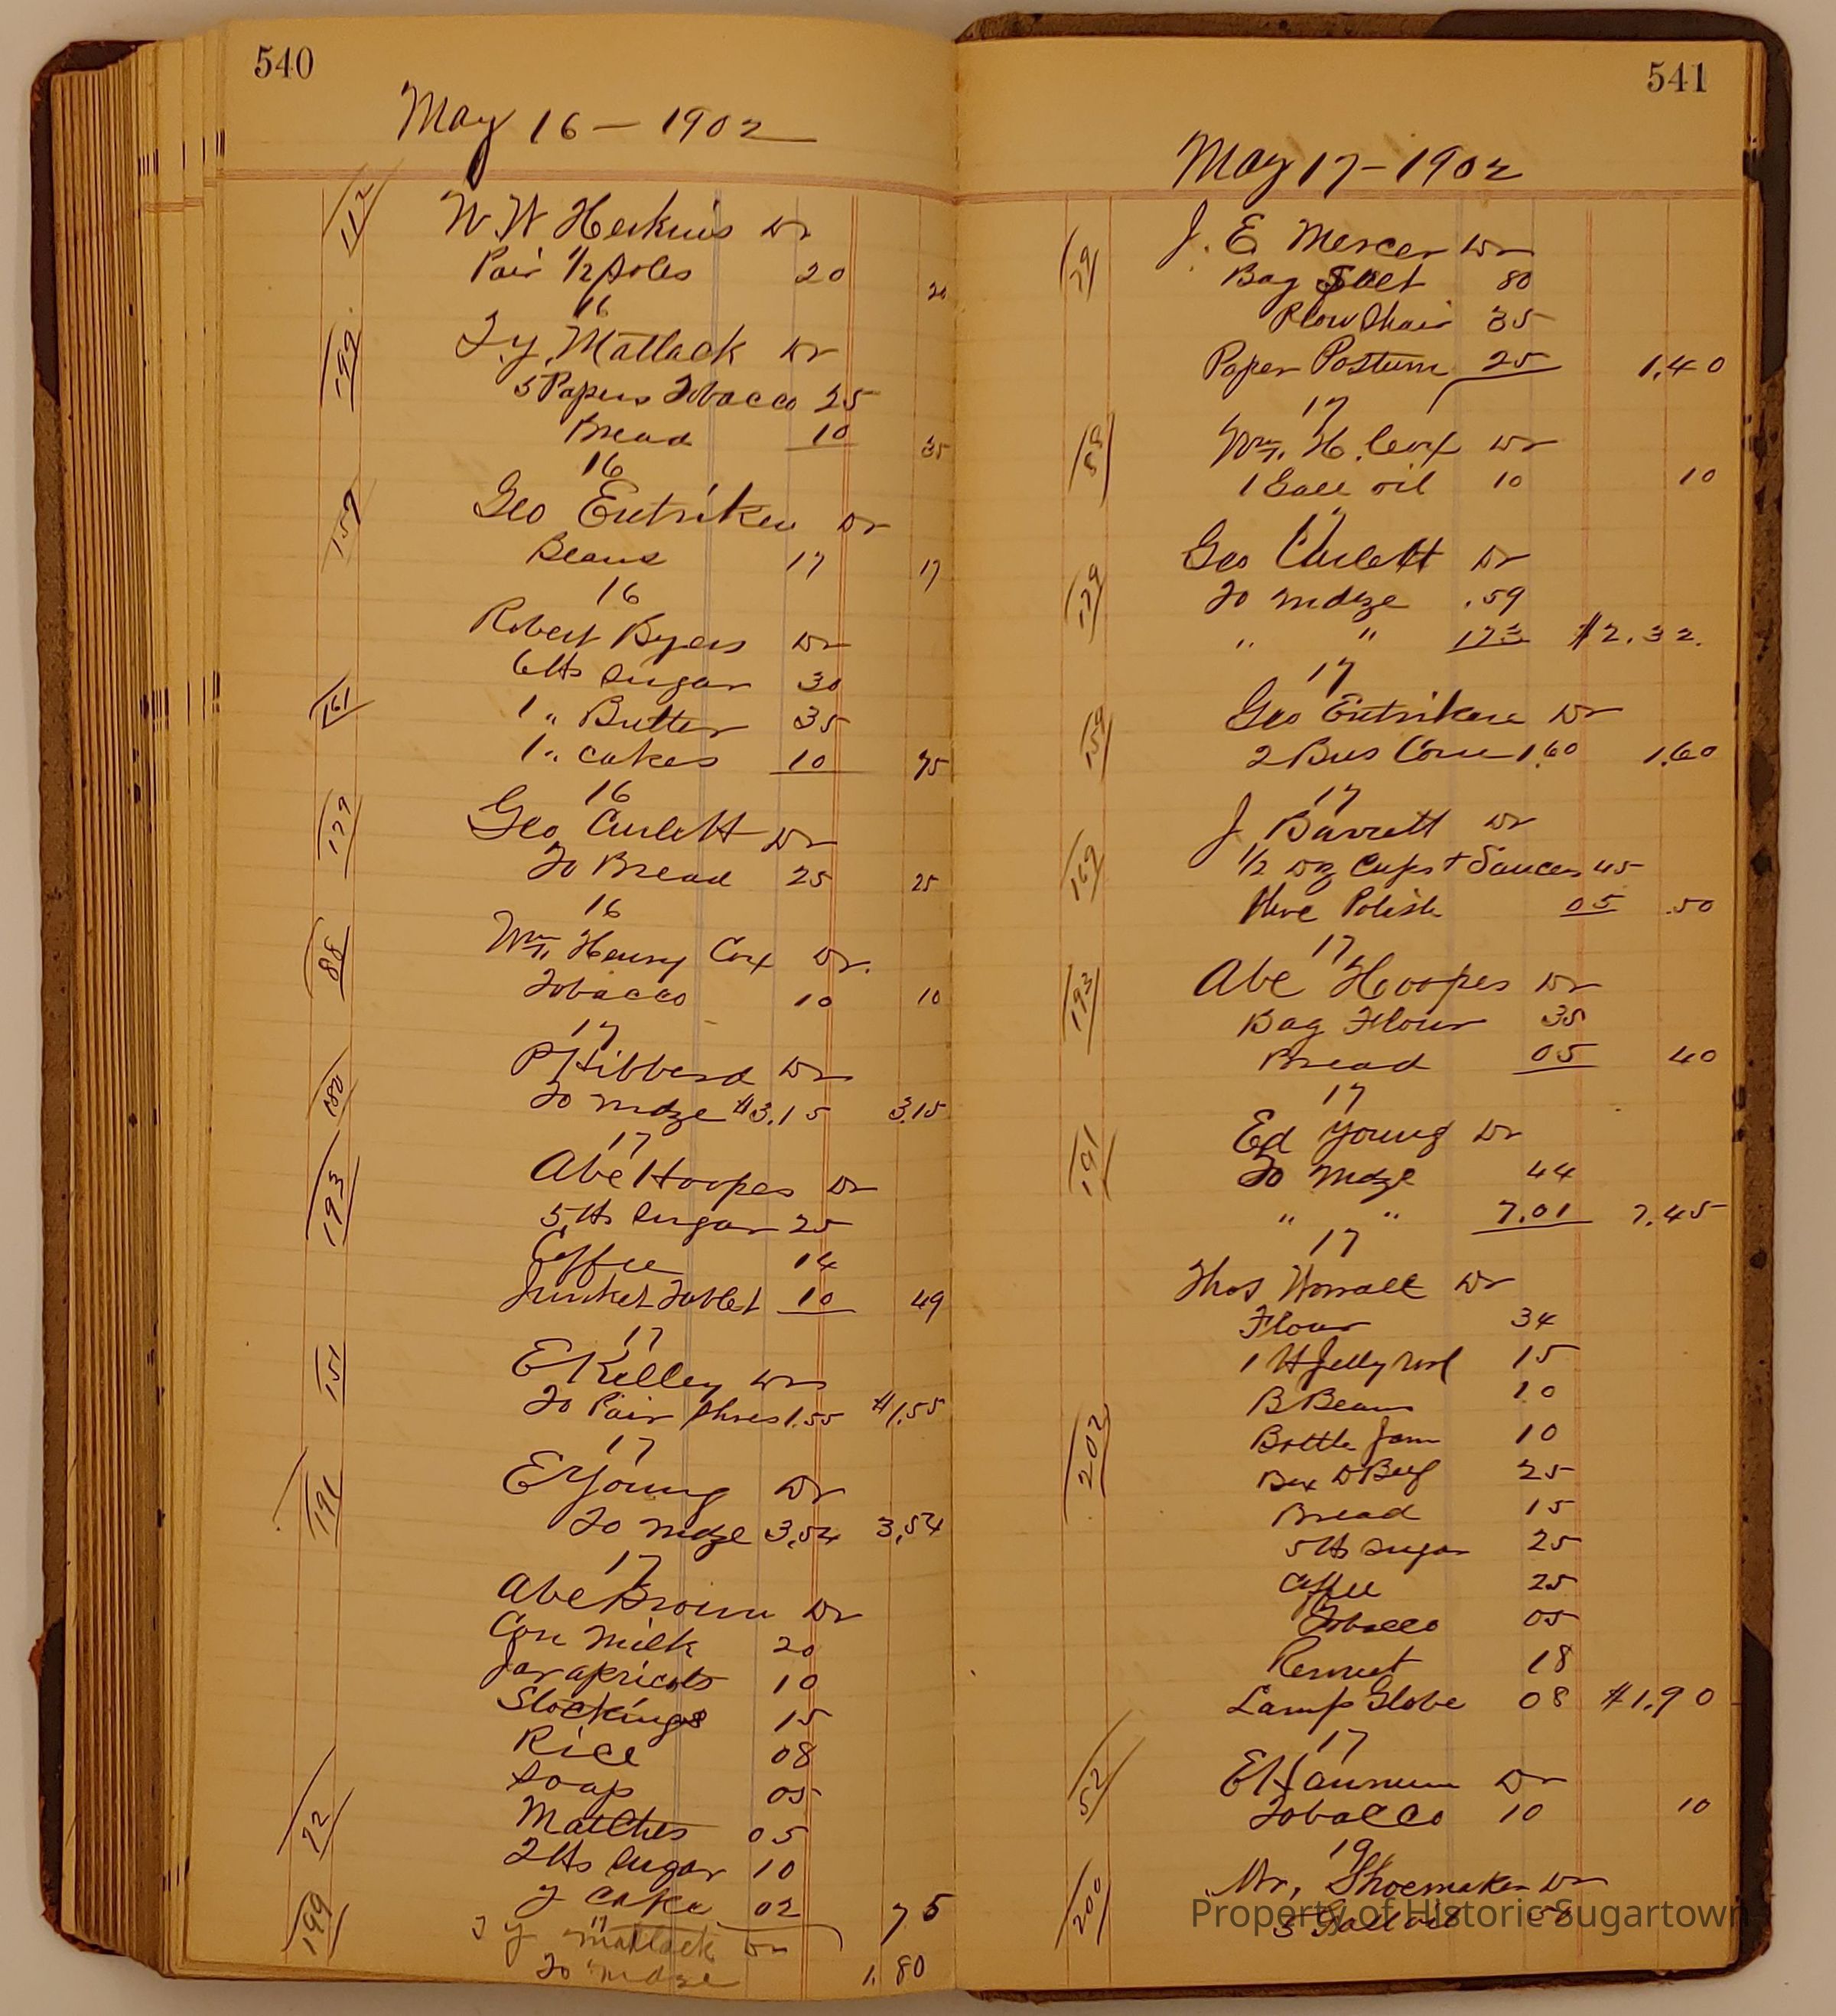 540
May 16 - 1902
112
W. W. Herkins Dr
Pair 1/2 Soles 20 20
16
199
T. Y. Matlack Dr
5 Papers Tobacco 25
Bread 10 35
16
159
Geo Entriken Dr
Beans 17 17
16
Robert Byers Dr
6 lbs Sugar 30
161
1 " Butter 35
1 " cakes 10 75
16
179
Geo Curlett Dr
To Bread 25 25
16
88
Wm. Henry Cox Dr.
Tobacco 10 10
17
180
P Hibberd Dr
To mdze $3.15 3.15
17
193
Abe Hoopes Dr
5 lbs Sugar 25
Coffee 14
Junket Tablet 10 49
17
151
E Kelley Dr
To Pair Shoes 1.55 $1.55
17
191
E Young Dr
To mdze 3.54 3.54
17
Abe Brown Dr
Con Milk 20
Jar apricots 10
Stockings 15
Rice 08
Soap 05
72
Matches 05
2 lbs Sugar 10
Y Cake 02 75
17
199
T Y Matlack Dr
To mdze 1.80
541
May 17 - 1902
79
J. E Mercer Dr
Bag Salt 80
Plow Shair 35
Paper Postum 25 1.40
17
88
Wm. H. Cox Dr
1 Gall oil 10 10
17
179
Geo Curlett Dr
To mdze .59
" " 173 $2.32.
17
159
Geo Entriken Dr
2 Bus Corn 1.60 1.60
17
169
J Barrett Dr
1/2 Dz Cups + Saucers 45
Polish 05 .50
17
193
Abe Hoopes Dr
Bag Flour 35
Bread 05 40
17
191
Ed Young Dr
To Mdze 44
" " 7.01 7.45
17
Thos Worrall Dr
Flour 34
1 lb Jelly Rool 15
B Beans 10
202
Bottle Jam 10
Box D Beef 25
Bread 15
5 lbs Sugar 25
Coffee 25
Tobacco 05
Rennet 18
Lamp Globe 08 $1.90
17
52
E Hannum Dr
Tobacco 10 10
19
200
Mr. Shoemaker Dr
5 Gall oil 50
Property of Historic Sugartown